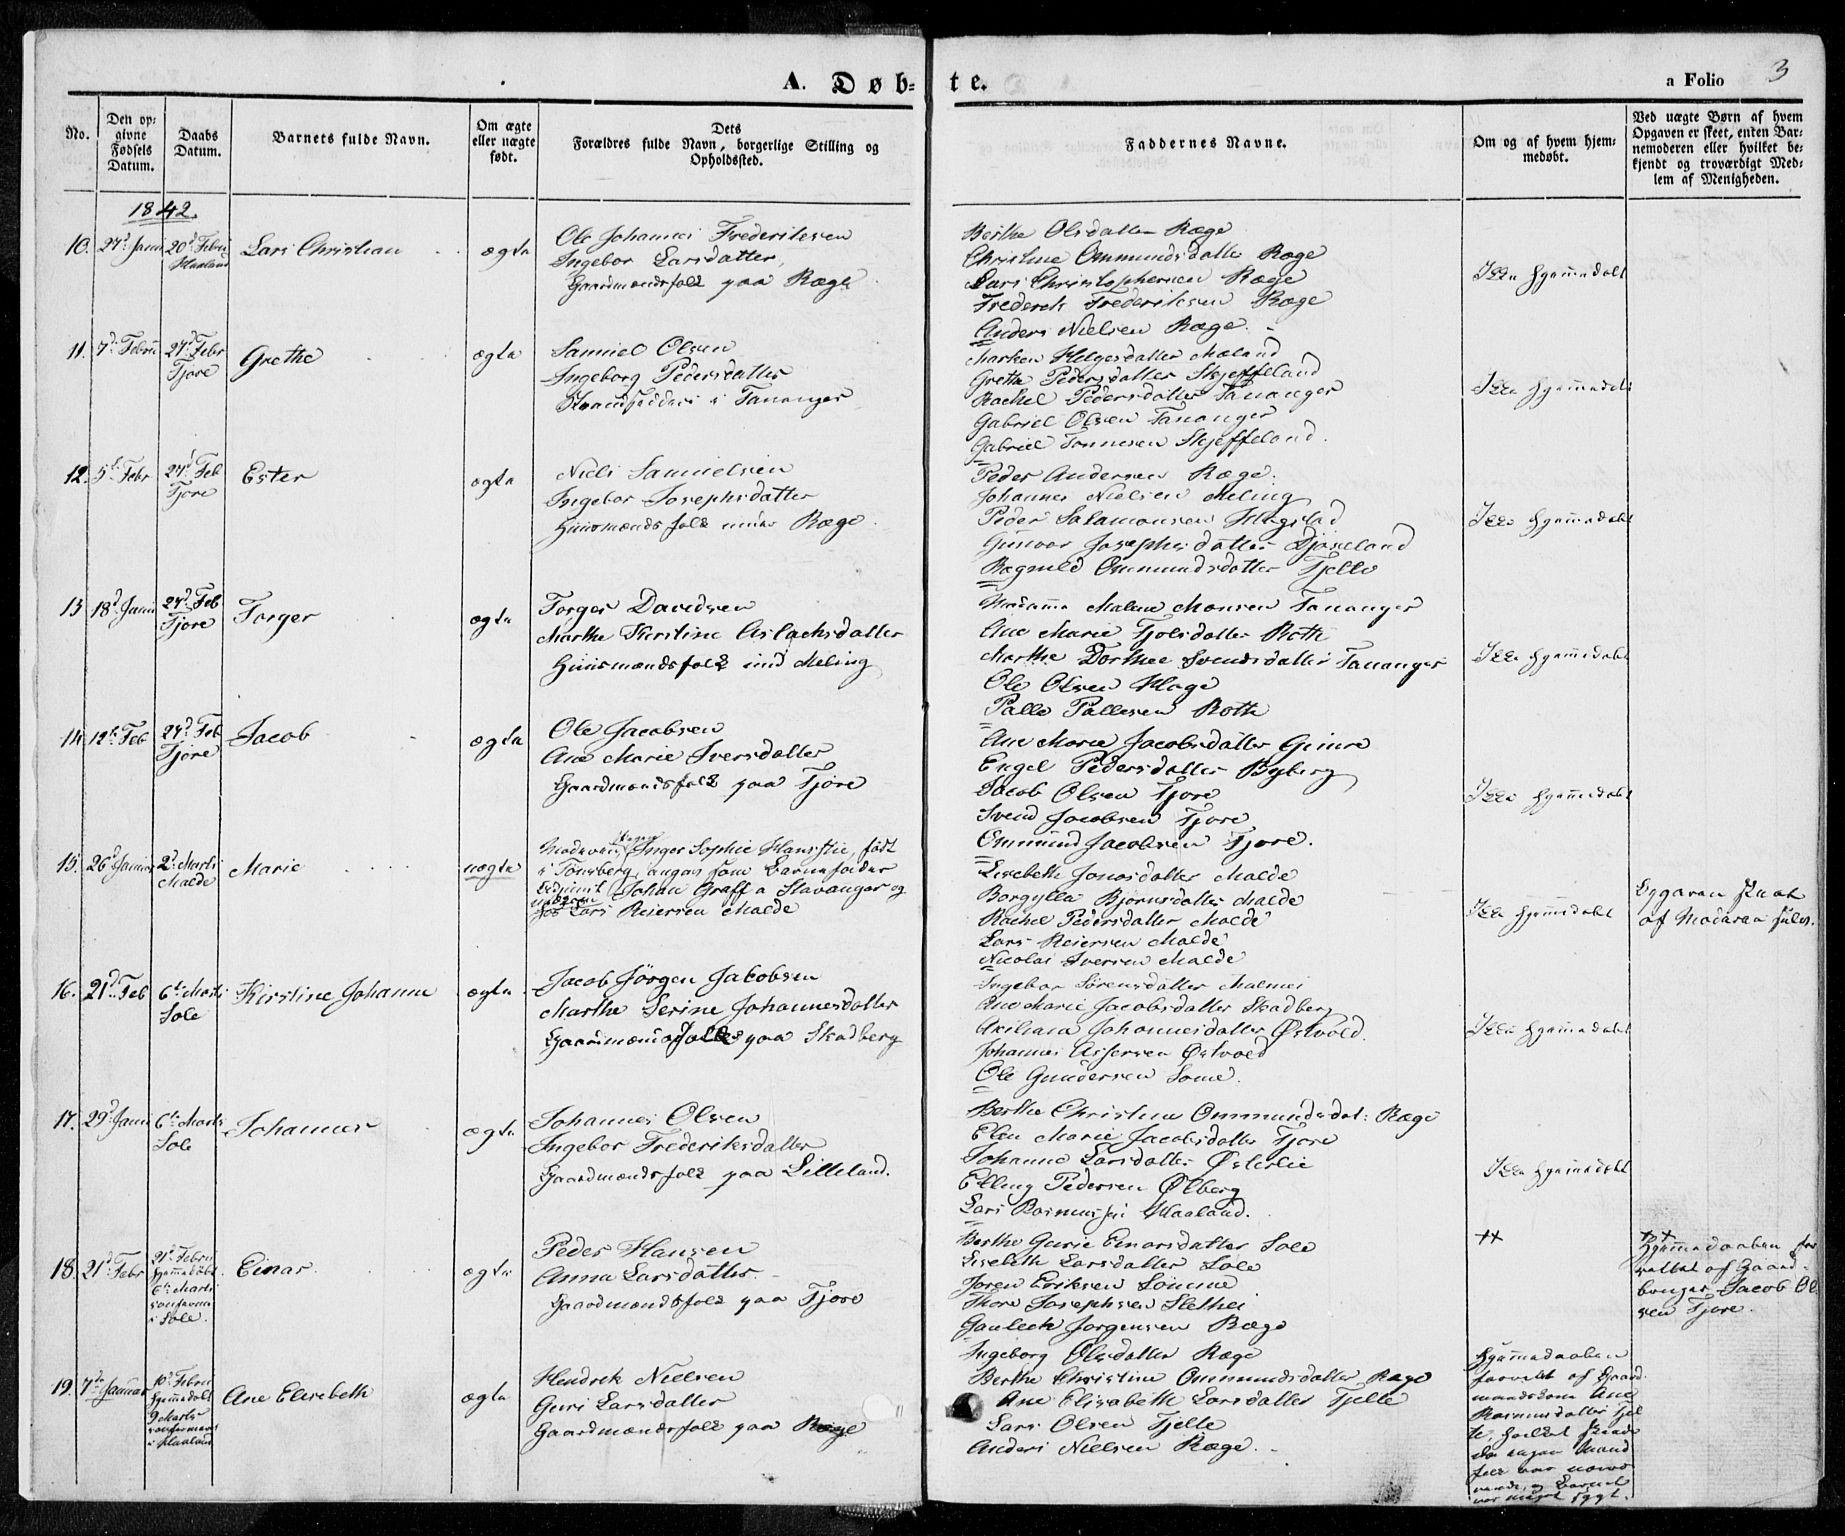 A. Døb= te.
a Folio 3
No.
Den op=
givne
Fødsels
Datum.
Daabs
Datum.
Barnets fulde Navn.
Om ægte
eller uægte
født.
Dets
Forældres fulde Navn, borgerlige Stilling og
Opholdssted.
Faddernes Navne.
Om og af hvem hjem=
medøbt.
Ved uægte Børn af hvem
Opgaven er skeet, enten Bar=
nemoderen eller hvilket be=
kjendt og troværdigt Med=
lem af Menigheden.
1842.
10. 27d Janu 20d Febru Haaland
Lars Christian
ægte
Ole Johannes Frederiksen
Ingebor Larsdatter,
Gaardmandsfolk paa Ræge
Berthe Olsdatter Ræge
Christine Ommundsdatter Ræge
Lars Christophersen Ræge
Frederik Frederiksen Ræge
Anders Nielsen Ræge.
Ikke hjemmedøbt
11. 7d Febru 27d Febr Tjore
Grethe
ægte
Samuel Olsen
Ingeborg Pedersdatter
Strandsiddere i Tananger
Marken Helgesdatter Meland
Grethe Pedersdatter Skjeffeland
Rachel Pedersdatter Tananger
Gabriel Olsen Tananger
Gabriel Tonnesen Skjeffeland.
Ikke hjemmedøbt
12. 5t Febr 27d Feb Tjore
Ester
ægte
Niels Samuelsen
Ingebor Josephsdatter
Huusmandsfolk under Ræge.
Peder Andersen Ræge.
Johannes Nielsen Meling
Peder Salamonsen Hagstad
Gunvor Josephsdatter Djoseland
Ragnild Ommundsdatter Tjelte
Ikke hjemmedøbt
13 18d Janu 27d Feb Tjore
Torger
ægte
Torger Davidsen
Marthe Kirstine Aslachsdatter
Huusmandsfolk und Meling
Madamme Malene Monsen Tananger
Ane Marie Tjolsdatter Roth
Marthe Dorthee Svendsdatter Tananger
Ole Olsen Hage
Palle Pallesen Roth
Ikke hjemmedøbt
14. 12t Feb 27d Feb Tjore
Jacob
ægte
Ole Jacobsen
Ane Marie Iversdatter
Gaardmandsfolk paa Tjore
Ane Marie Jacobsdatter Gimre
Engel Pedersdatter Byberg
Jacob Olsen Tjore
Svend Jacobsen Tjore
Ommund Jacobsen Tjore.
Ikke hjemmedøbt
15. 26d Januar 2d Marti Malde
Marie
uægte
Inger Sophie Hansstie, født
i Tønsberg, angav som Barnefader
Johan Graff a Stavanger og
Lars Reiersen Malde
Lisebeth Jonasdatter Malde
Borgylla Bjørnsdatter Malde
Rachel Pedersdatter Malde
Lars Reiersen Malde
Nicolai Iversen Malde
Ikke hjemmedøbt
Opgaven skeet
af Moderen selv.
16. 21d Feb 6t Marti Sole
Kirstine Johanne
ægte
Jacob Jörgen Jacobsen
Marthe Serine Johannesdatter
Gaardmandsfolk paa Skadberg
Ingebor Sørensdatter Malmei
Ane Marie Jacobsdatter Skadberg
Axeliana Johannesdatter Østvold.
Johannes Assersen Østvold
Ole Gundersen Some.
Ikke hjemmedøbt
17. 29d Janu 6t Marts Sole
Johannes
ægte
Johannes Olsen
Ingebor Frederiksdatter
Gaardmandsfolk paa Lilleland.
Berthe Christine Ommundsdat: Ræge
Elen Marie Jacobsdatter Tjore
Johanne Larsdatter Østerlie
Elling Pedersen Ølberg
Lars Rasmussen Haaland.
Ikke hjemmedøbt
18. 21d Febr 21d Febru hjemmedøbt 6t Marti confirm i Sole.
Einar.
ægte
Peder Hansen
Anna Larsdatter.
Gaardmandsfolk paa Tjore
Berthe Gurie Einarsdatter Sole
Lisebeth Larsdatter Sole
Joren Eriksen Sømme
Thore Josephsen Slethei
Gauleck Jorgensen Ræge
++
++
Hjemmedaaben for
rettet af Gaard=
bruger Jacob Ol
sen Tjore.
19. 7de Januar 10d Febru hjemmedøbt 9 Marts i Haaland
Ane Elisebeth
ægte
Hendrik Nielsen
Guri Larsdatter
Gaardmandsfolk paa Ræge
Ingeborg Olsdatter Ræge
Berthe Christine Ommundsdatter Ræge
Ane Elisabeth Larsdatter Tjelte
Lars Olsen Tjelte
Anders Nielsen Ræge.
Hjemmedaaben
forrettet af Gaard
mandskone Ane
Rasmusdatter Tjel
te, hvilket skeede
da ingen Mand
folk var nærvæ
rende, og Barnet
var meget sygt.